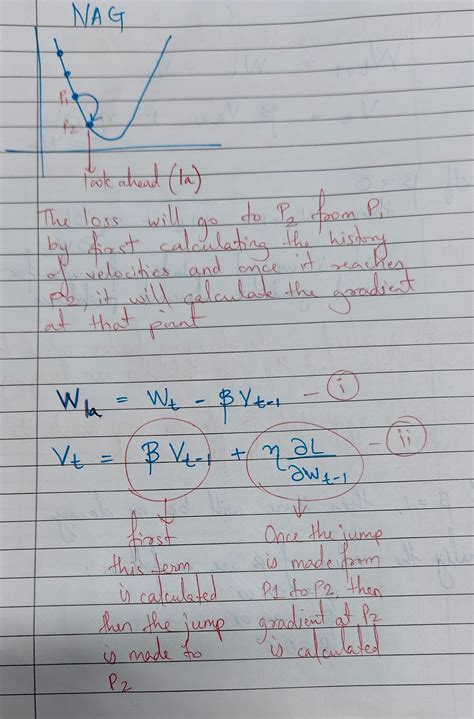 NAG
P1
P2
look ahead (la)
The loss will go to P2 from P1
by first calculating the history
of velocities and once it reaches
P2, it will calculate the gradient
at that point
Wla = Wt - βVt-1 - (i)
Vt = βVt-1 + η ∂L/∂Wt-1 - (ii)
first
this term
is calculated
then the jump
is made to
P2
Once the jump
is made from
P1 to P2, then
gradient at P2
is calculated